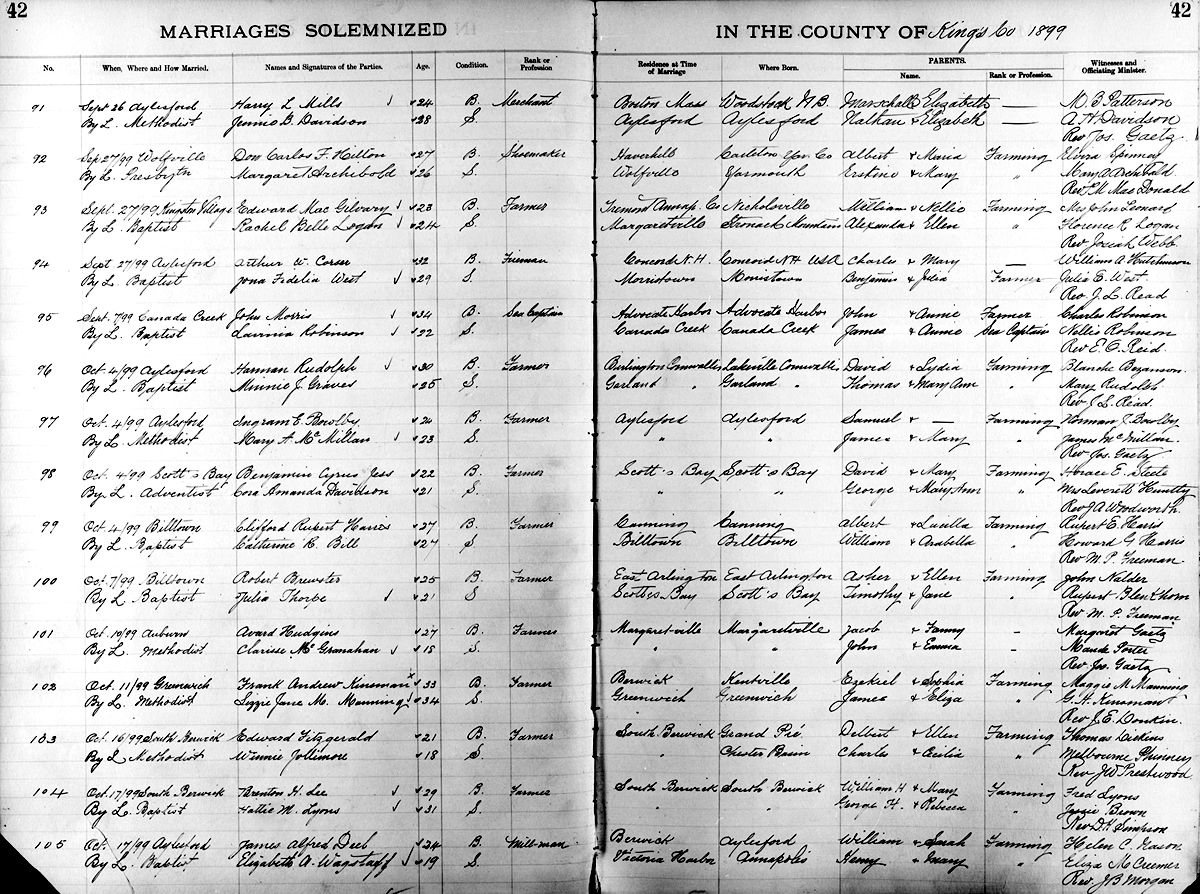 42 42
MARRIAGES SOLEMNIZED IN THE COUNTY OF Kings Co 1899
No. When, Where and How Married. Names and Signatures of the Parties. Age. Condition. Rank or Profession Residence at Time of Marriage Where Born. PARENTS. Name. Rank or Profession. Witnesses and Officiating Minister.
91 Sept 26 Aylesford Harry L Mills 24 B. Merchant Boston Mass Woodstock N.B. Marschall Elizabeth — M. B Patterson
By L. Methodist Jennie B. Davidson 28 S. Aylesford Aylesford Nathan & Elizabeth — A H Davidson
Rev Jos. Gaetz
92 Sep 27/99 Wolfville Don Carlos F. Hilton 27 B. Shoemaker Haverhill Carleton Yar. Co Albert & Maria Farming Elvira Spinney
By L. Presbytn Margaret Archibald 26 S. Wolfville Yarmouth & Mary " Mary A Archibald
Rev. Mac Donald
93 Sept. 27/99 Kingston Village Edward Mac Gilvary 23 B. Farmer Tremont Annap. Co Nicholsville William & Nellie Farming Mrs John Leonard
By L. Baptist Rachel Belle Logan 24 S. Margaretville Stronach Mountain Alexander & Ellen " Florence R Logan
Rev Josiah Webb
94 Sept 27/99 Aylesford Arthur W. Corser 32 B. Fireman Concord N.H. Concord NH USA Charles & Mary — William A Hutchinson
By L. Baptist Iona Fidelia West 29 S. Morristown Morristown Benjamin & Julia Farmer Julia E. West
Rev. J. L. Read
95 Sept. 7/99 Canada Creek John Morris 34 B. Sea Captain Advocate Harbor Advocate Harbor John & Annie Farmer Charles Robinson
By L. Baptist Lavinia Robinson 22 S. Canada Creek Canada Creek James & Annie Sea Captain Nellie Robinson
Rev E. O. Reid.
96 Oct 4/99 Aylesford Harman Rudolph 30 B. Farmer Burlington Cornwallis Lakeville Cornwallis David & Lydia Farming Blanche Bezanson
By L. Baptist Minnie J Graves 25 S. Garland " Garland " Thomas & Mary Ann " Mary Rudolph
Rev J. L. Read.
97 Oct. 4/99 Aylesford Ingram E. Bowlby 24 B. Farmer Aylesford Aylesford Samuel & — Farming Norman J. Bowlby
By L. Methodist Mary A. McMillan 23 S. " " James & Mary " James McMillan
Rev Jos. Gaetz
98 Oct. 4/99 Scott's Bay Benjamin Cyrus Jess 22 B. Farmer Scott's Bay Scott's Bay David & Mary Farming Horace E. Steele
By L. Adventist Cora Amanda Davidson 21 S. " " George & Mary Ann " Mrs Leverett Huntley
Rev J A Woodworth
99 Oct 4/99 Billtown Clifford Rupert Harris 27 B. Farmer Canning Canning Albert & Luella Farming Rupert E. Harris
By L. Baptist Catherine R. Bill 27 S Billtown Billtown William & Arabella " Howard G Harris
Rev M. P. Freeman
100 Oct. 7/99 Billtown Robert Brewster 25 B. Farmer East Arlington East Arlington Asher & Ellen Farming John Nalder
By L Baptist Julia Thorpe 21 S. Scott's Bay Scott's Bay Timothy & Jane " Rupert
Rev M. P. Freeman
101 Oct. 10/99 Auburn Avard Hudgins 27 B. Farmer Margaret-ville Margaretville Jacob & Fanny — Margaret Gaetz
By L. Methodist Clarisse McGranahan 18 S. " " John & Emma — Maude Porter
Rev. Jos. Gaetz
102 Oct. 11/99 Greenwich Frank Andrew Kinsman 33 B. Farmer Berwick Kentville Ezekiel & Sophia Farming Maggie M Manning
By L. Methodist Lizzie Jane M. Manning 34 S. Greenwich Greenwich James & Eliza " G. H. Kinsman
Rev J. E. Donkin.
103 Oct. 16/99 South Berwick Edward Fitzgerald 21 B. Farmer South Berwick Grand Pré Delbert & Ellen Farming Thomas Dickins
By L Methodist Winnie Jollimore 18 S. " Chester Basin Charles & Cecilia " Melbourne Phinney
Rev JW Prestwood
104 Oct. 17/99 South Berwick Trenton H. Lee 29 B. Farmer South Berwick South Berwick William H & Mary Farming Fred Lyons
By L. Baptist Hattie M. Lyons 31 S. " " George H. & Rebecca " Jessie Brown
Rev D. H. Simpson
105 Oct. 17/99 Aylesford James Alfred 24 B. Mill-man Berwick Aylesford William & Sarah Farming Helen C. Nason
By L. Baptist Elizabeth A. Wagstaff 19 S. Victoria Harbor Annapolis Henry & Mary " Eliza McCreemer
Rev. J B Morgan